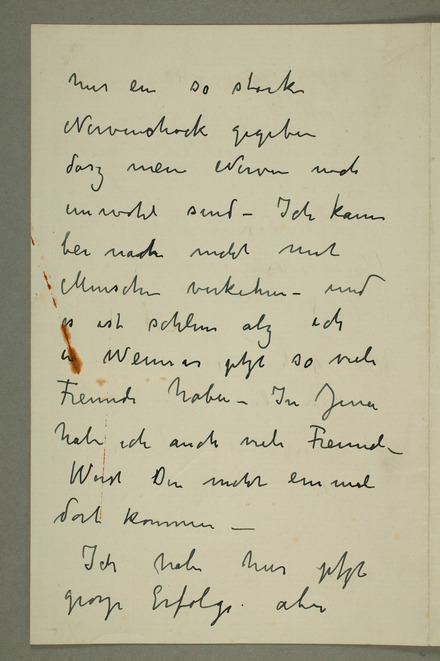 mir ein so starker
Nervenshock gegeben
dasz meine Nerven noch
unwohl sind – Ich kann
bei nach nicht mit
Menschen verkehren – und
es ist schlim alz ich
in Weimar jetzt so viele
Freunde habe – In Jena
habe ich auch viele Freunde –
Wirst Du nicht einmal
dort kommen –
Ich habe hier jetzt
grosze Erfolge. aber